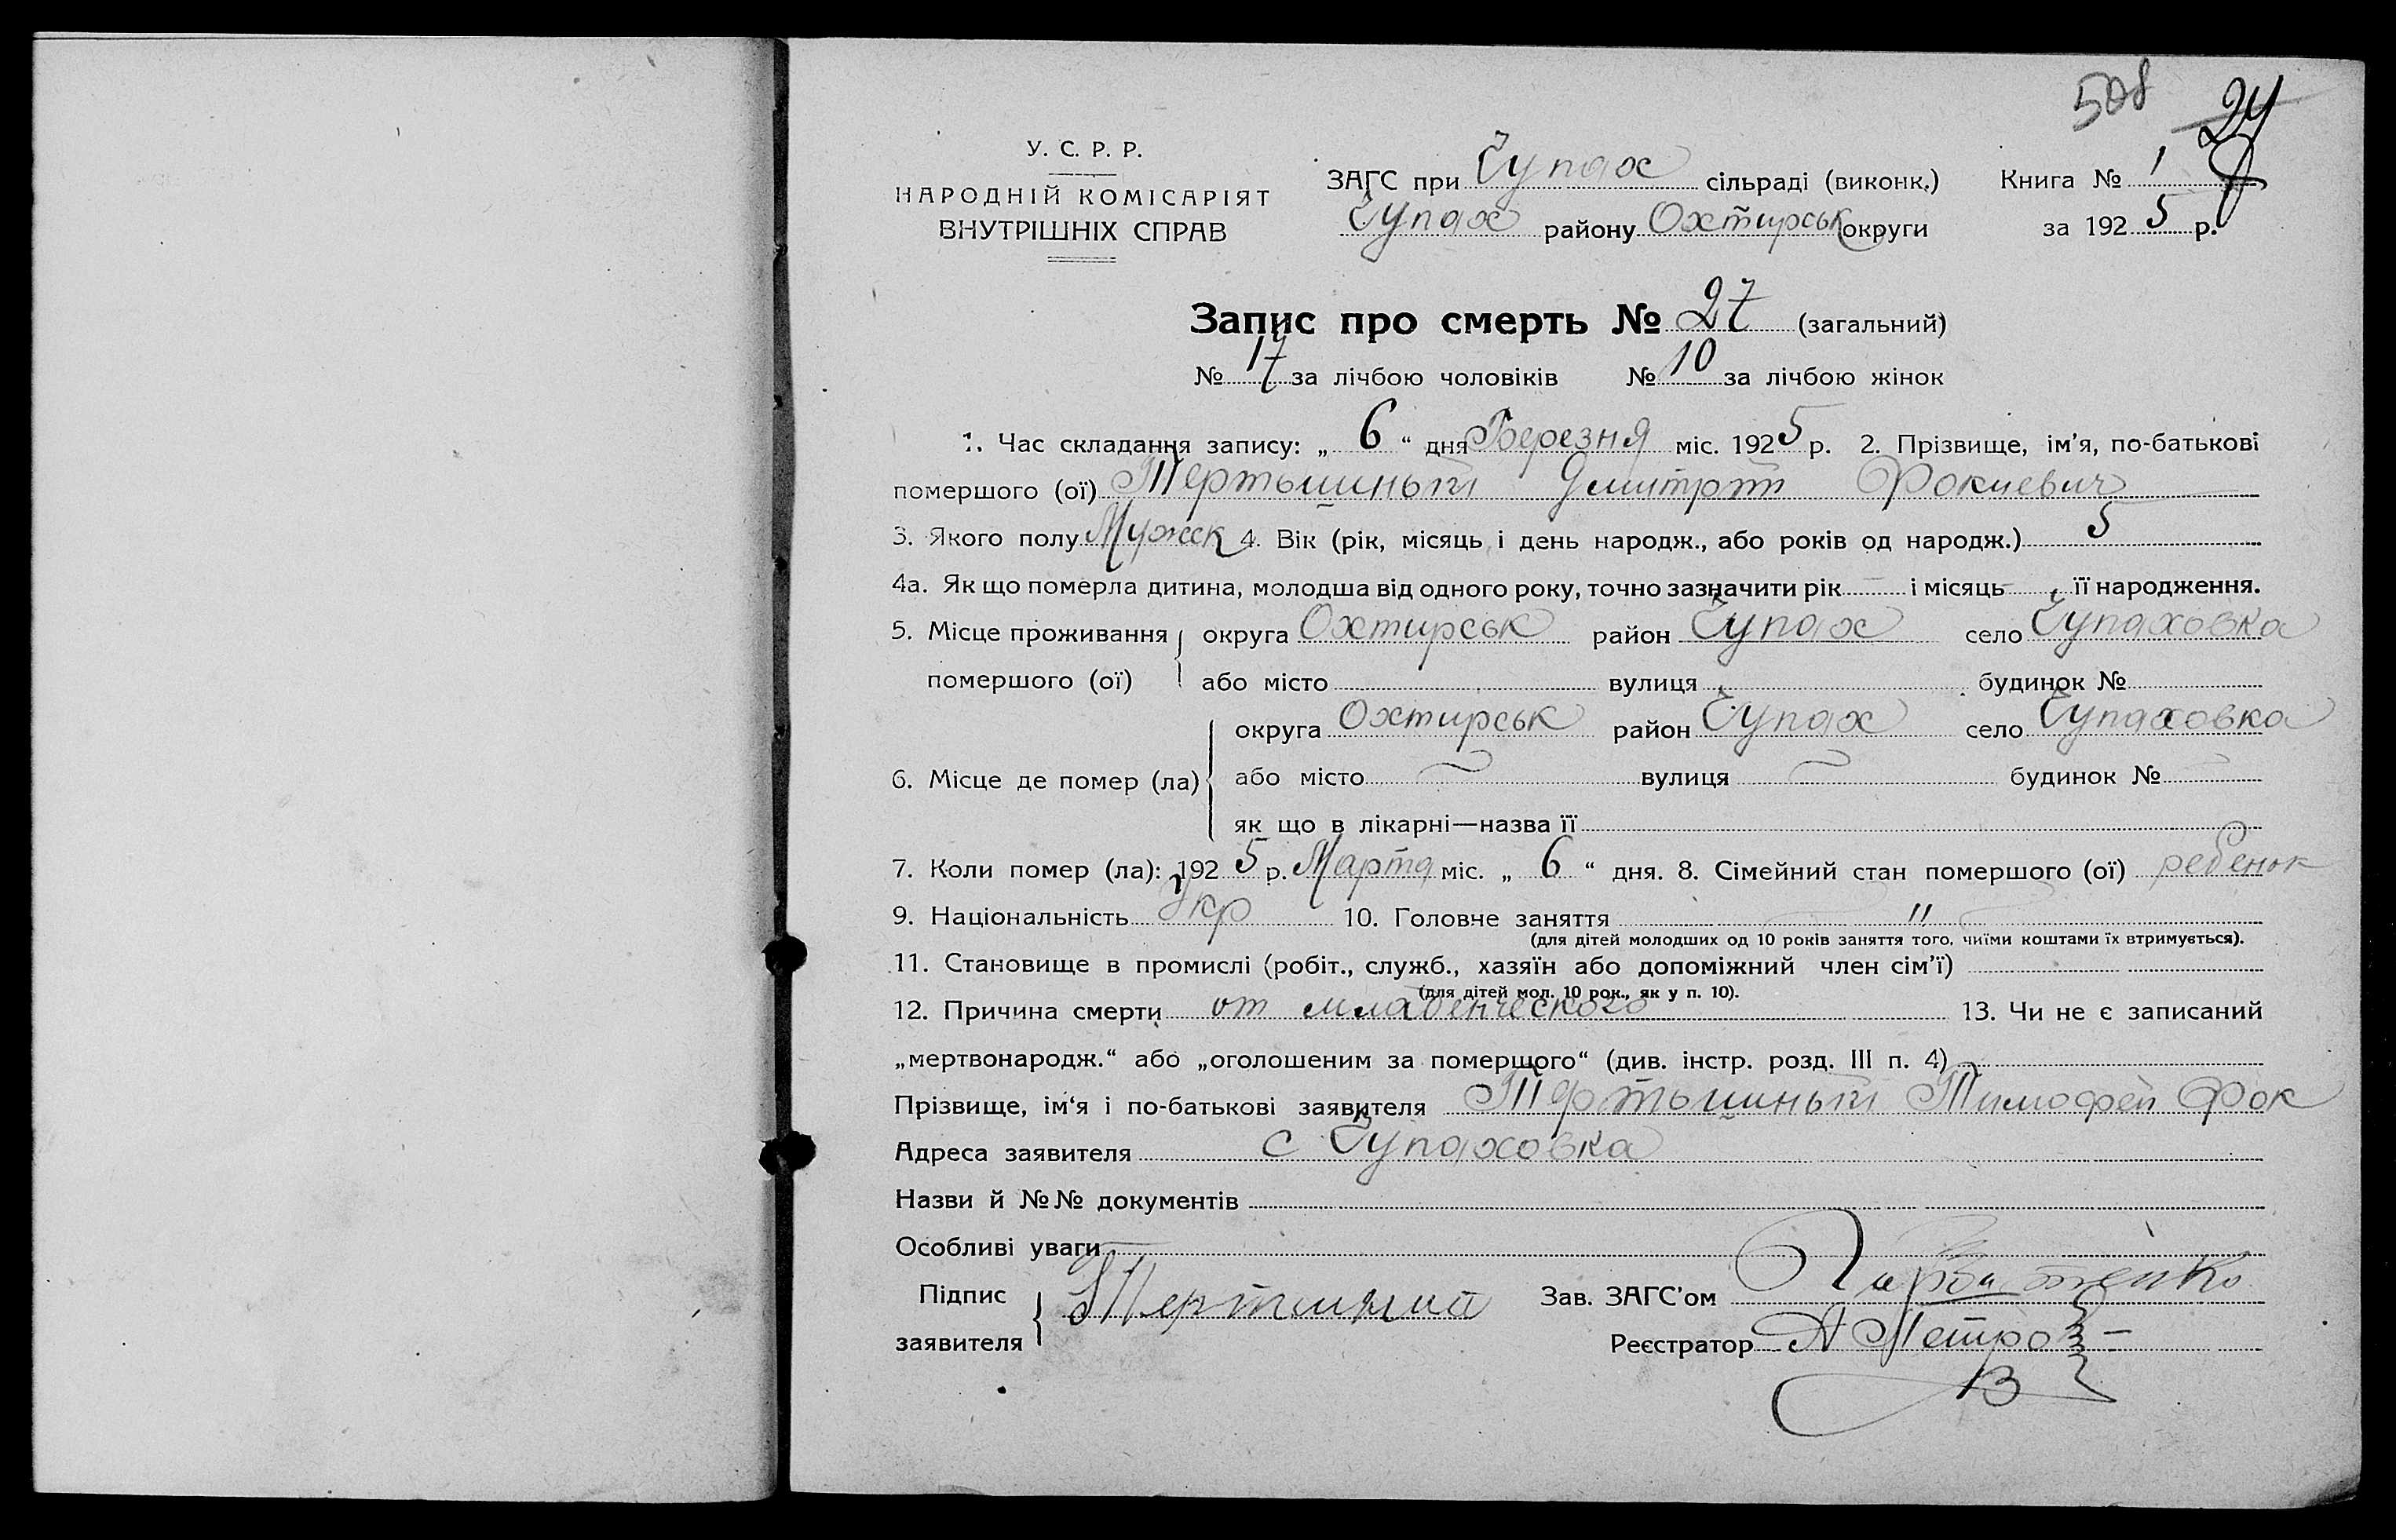 508 24
У. С. Р. Р.
НАРОДНІЙ КОМІСАРІЯТ
ВНУТРІШНІХ СПРАВ
ЗАГС при Чупах сільраді (виконк.) Книга № 1
Чупах району Охтирськ округи за 1925 р.
Запис про смерть № 27 (загальний)
№ 17 за лічбою чоловіків № 10 за лічбою жінок
1. Час складання запису: „ 6 “ дня Березня міс. 1925 р. 2. Прізвище, ім’я, по-батькові
помершого (ої) Тертышный Дмитрий Фокиевич
3. Якого полу Мужск 4. Вік (рік, місяць і день народж., або років од народж.) 5
4а. Як що померла дитина, молодша від одного року, точно зазначити рік — і місяць — її народження.
5. Місце проживання округа Охтирськ район Чупах село Чупаховка
помершого (ої) або місто вулиця будинок №
округа Охтирськ район Чупах село Чупаховка
6. Місце де помер (ла) або місто вулиця будинок №
як що в лікарні—назва її
7. Коли помер (ла): 1925 р. Марта міс. „ 6 “ дня. 8. Сімейний стан помершого (ої) ребенок
9. Національність Укр 10. Головне заняття "
(для дітей молодших од 10 років заняття того, чиїми коштами їх втримується).
11. Становище в промислі (робіт., служб., хазяїн або допоміжний член сім’ї)
(для дітей мол. 10 рок., як у п. 10).
12. Причина смерти от младенческого 13. Чи не є записаний
„мертвонародж.“ або „оголошеним за померщого“ (див. інстр. розд. III п. 4)
Прізвище, ім‘я і по-батькові заявителя Тертышный Тимофей Фок
Адреса заявителя с Чупаховка
Назви й №№ документів
Особливі уваги
Підпис заявителя Тертишний Зав. ЗАГС’ом
Реєстратор А Петров